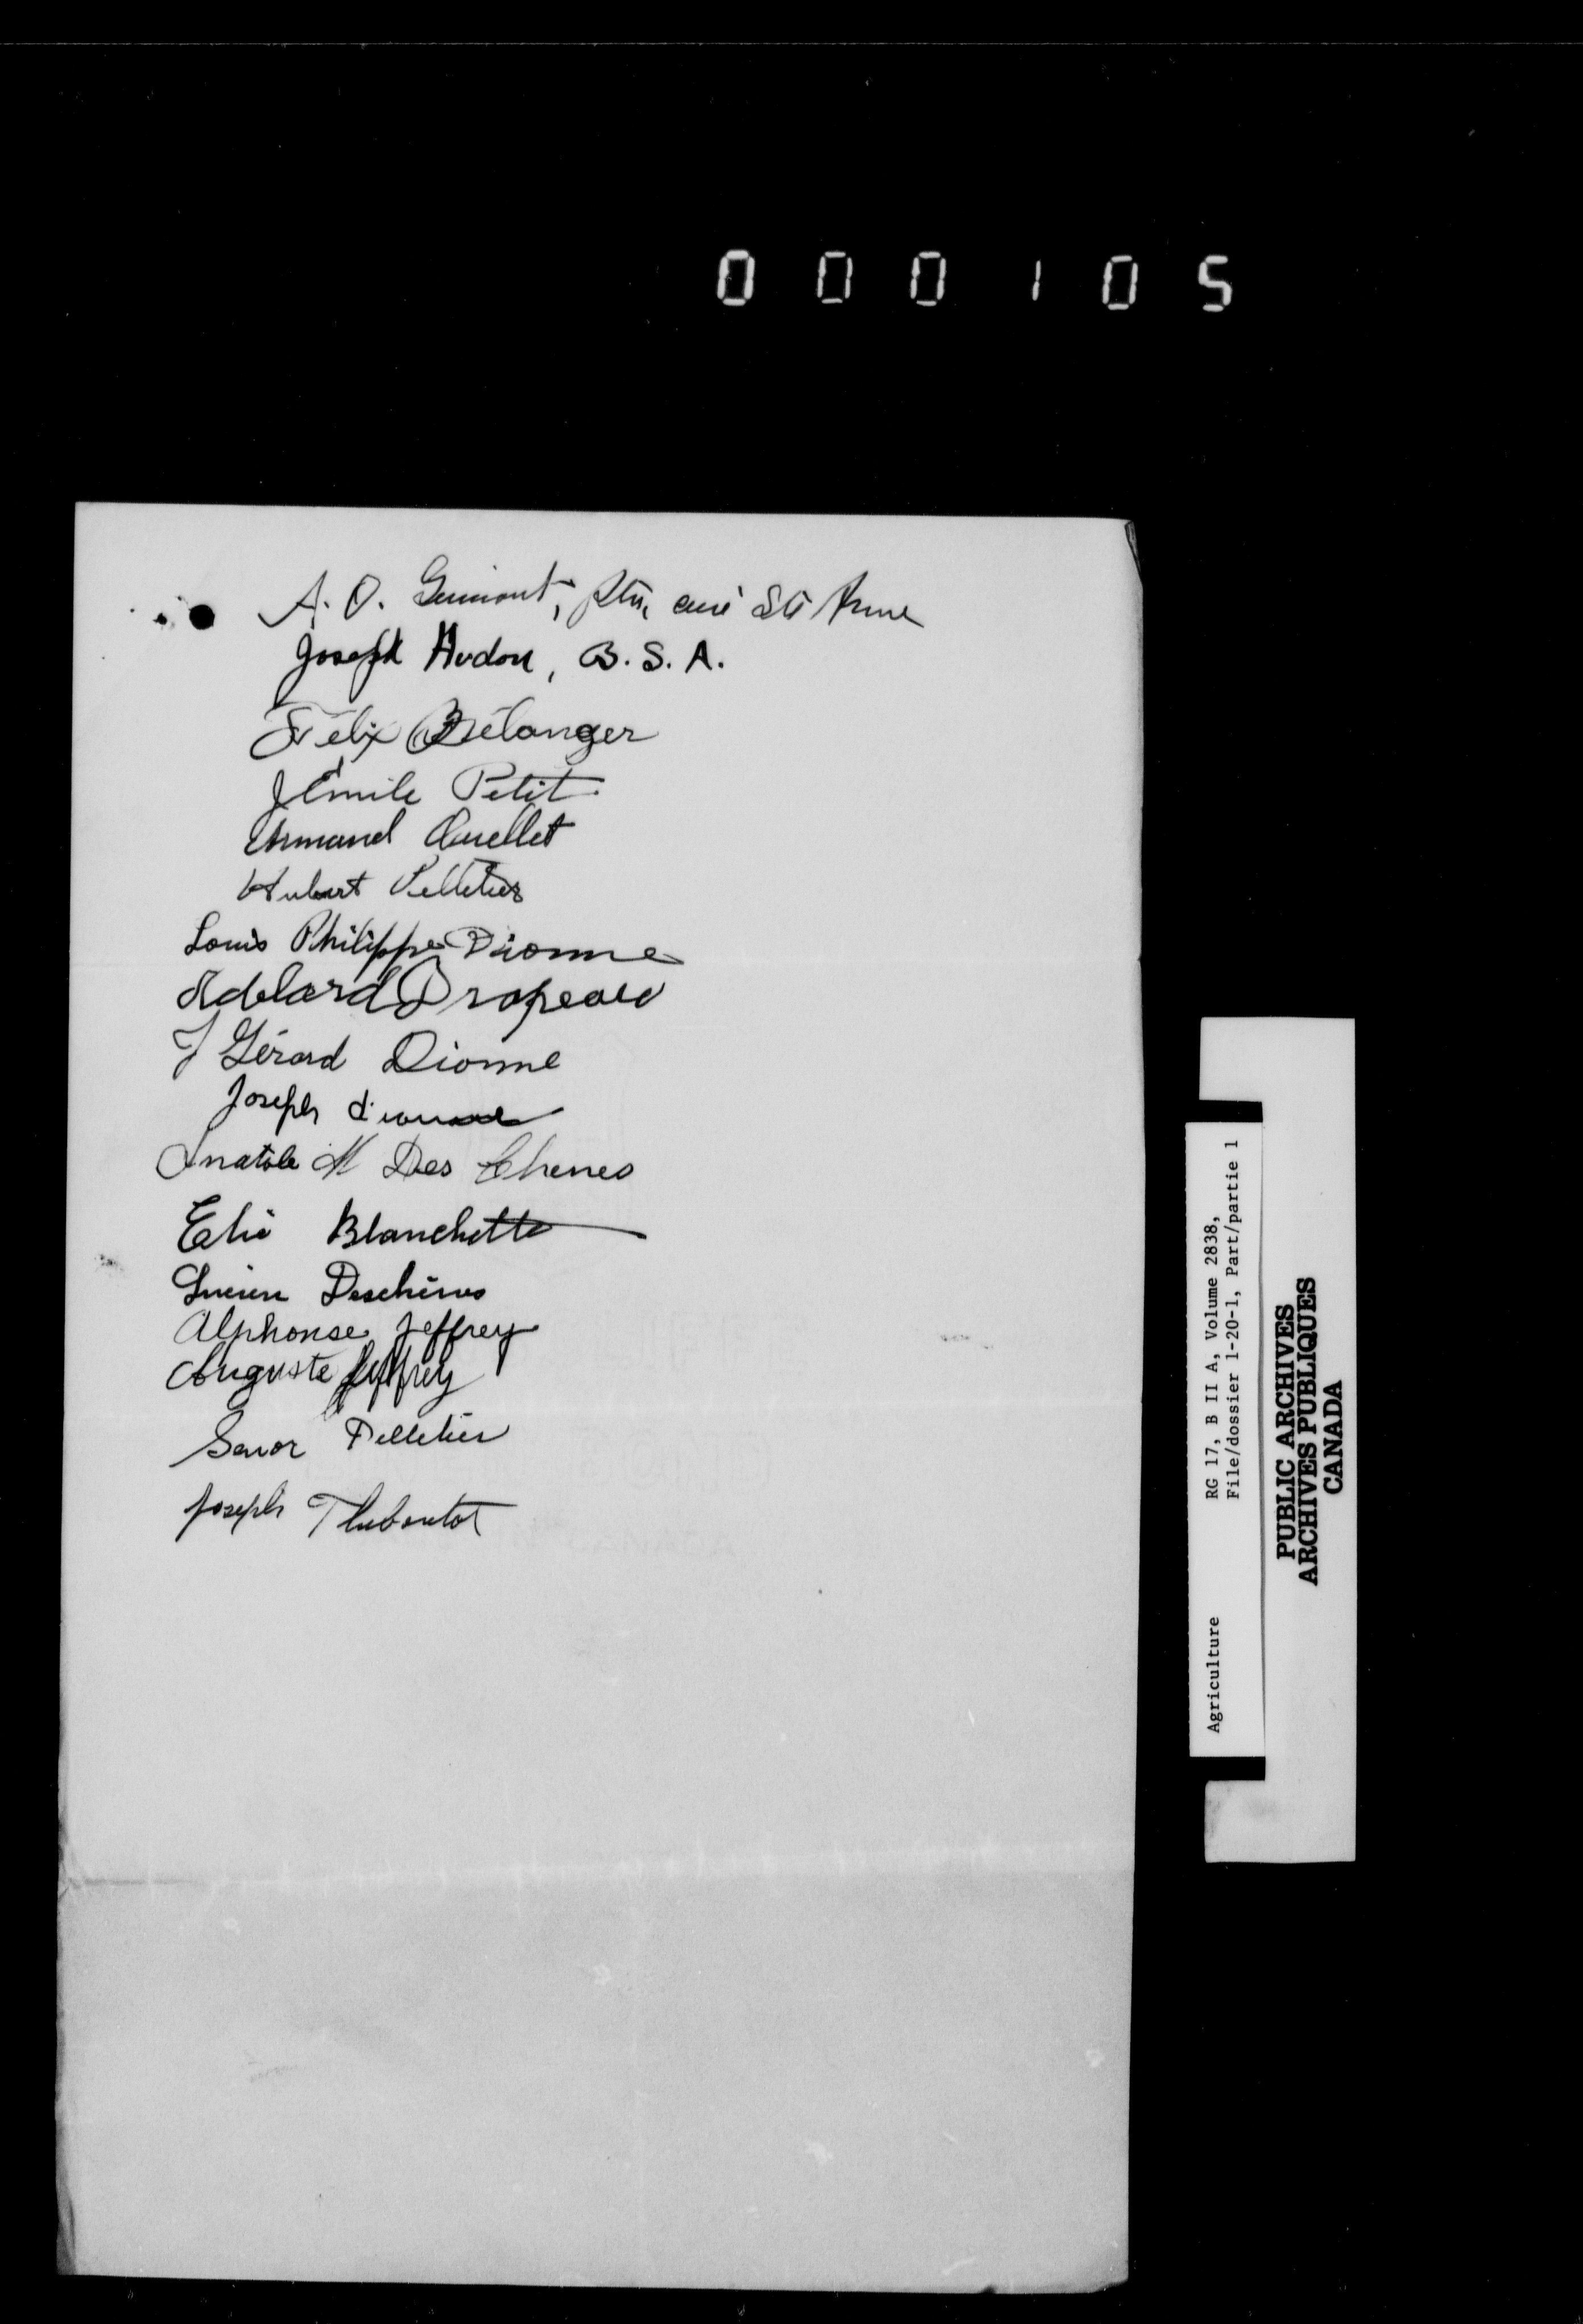 000105
A. O. Guimont, ptre, curé Ste Anne
Joseph Hudon, B.S.A.
Félix Bélanger
J Émile Petit
Armand Ouellet
Hubert Pelletier
Louis Philippe Dionne
Adelard Drapeau
J Gérard Dionne
Joseph dionne
Anatole M Des Chenes
Elie Blanchette
Lucien Deschênes
Alphonse Jeffrey
Auguste Jeffrey
Pelletier
Joseph Thiboutot
Agriculture RG 17, B II A, Volume 2838,
File/dossier 1-20-1, Part/partie 1
PUBLIC ARCHIVES
ARCHIVES PUBLIQUES
CANADA